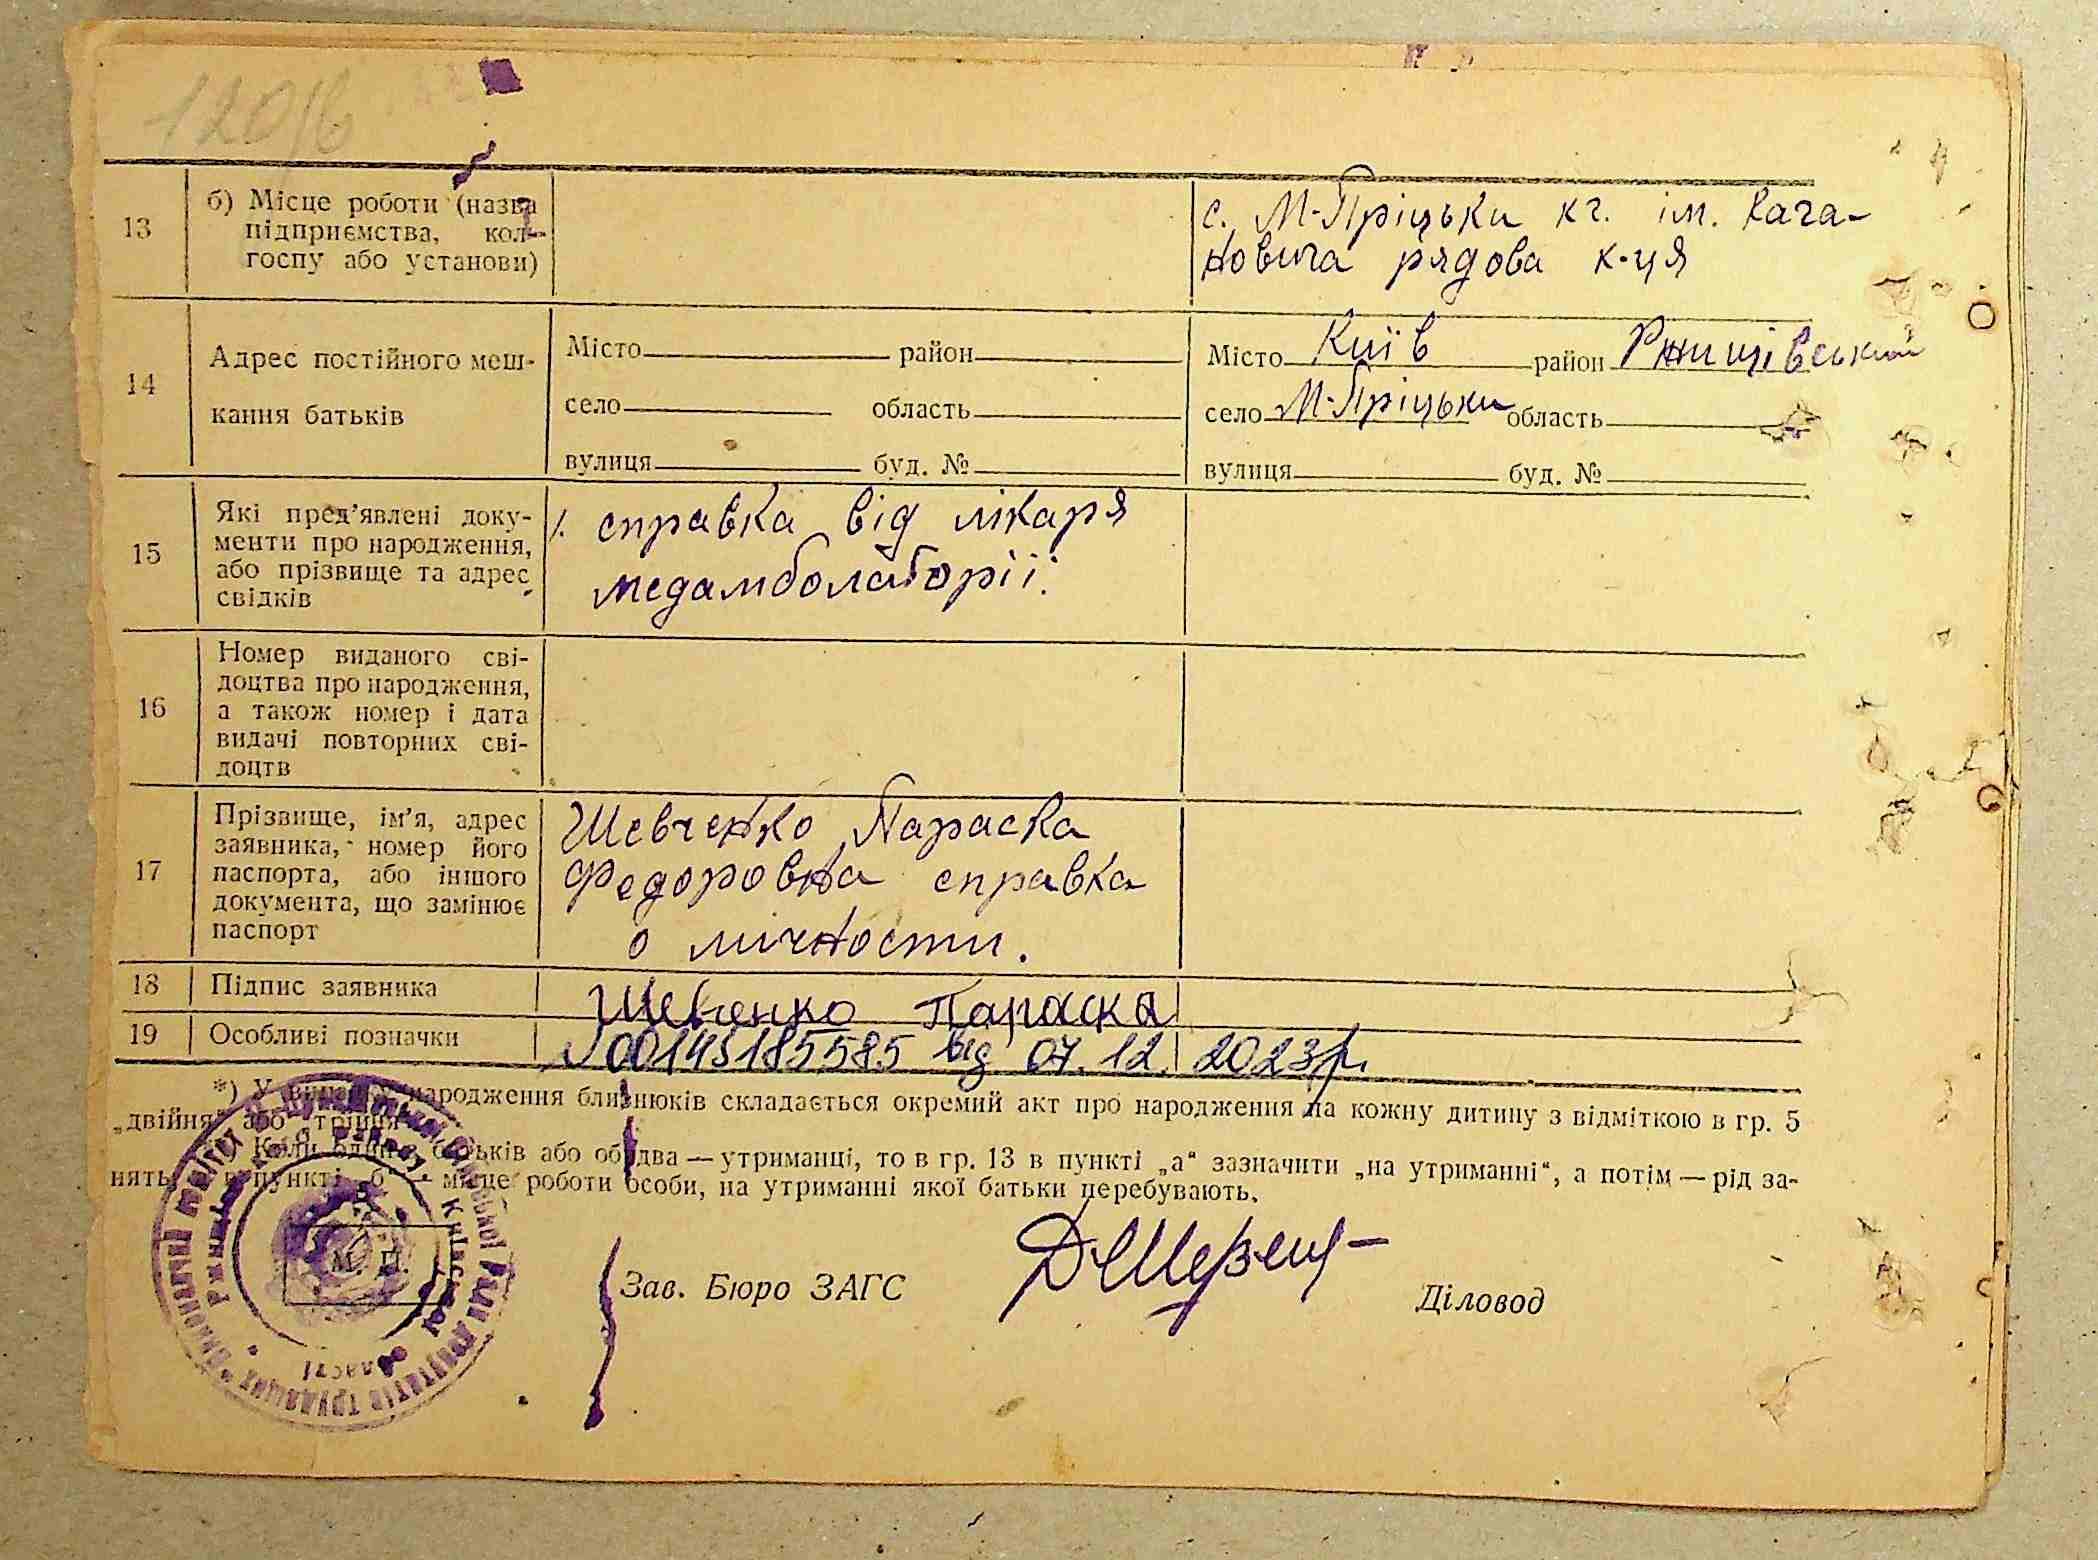 120/6
13
б) Місце роботи (назва
підприємства, кол-
госпу або установи)
с. М-Пріцьки кг. ім. Кага-
новича рядова к-ця
14
Адрес постійного меш-
кання батьків
Місто район
село область
вулиця буд. №
Місто Київ район Ржищівський
село М-Пріцьки область
вулиця буд. №
15
Які пред’явлені доку-
менти про народження,
або прізвище та адрес
свідків
1. справка від лікаря
медамболаторіі.
16
Номер виданого сві-
доцтва про народження,
а також номер і дата
видачі повторних сві-
доцтв
17
Прізвище, ім’я, адрес
заявника, номер його
паспорта, або іншого
документа, що замінює
паспорт
Шевченко Параска
Федоровна справка
о личности.
18 Підпис заявника Шевченко Параска
19 Особливі позначки 00145185585 від 07.12.2023р.
*) У випадку народження близнюків складається окремий акт про народження на кожну дитину з відміткою в гр. 5
„двійня“ або „трійня“.
Коли один з батьків або обидва — утриманці, то в гр. 13 в пункті „а“ зазначити „на утриманні“, а потім — рід за-
нять, в пункті „б“ - місце роботи особи, на утриманні якої батьки перебувають.
М. П.
Зав. Бюро ЗАГС
Діловод